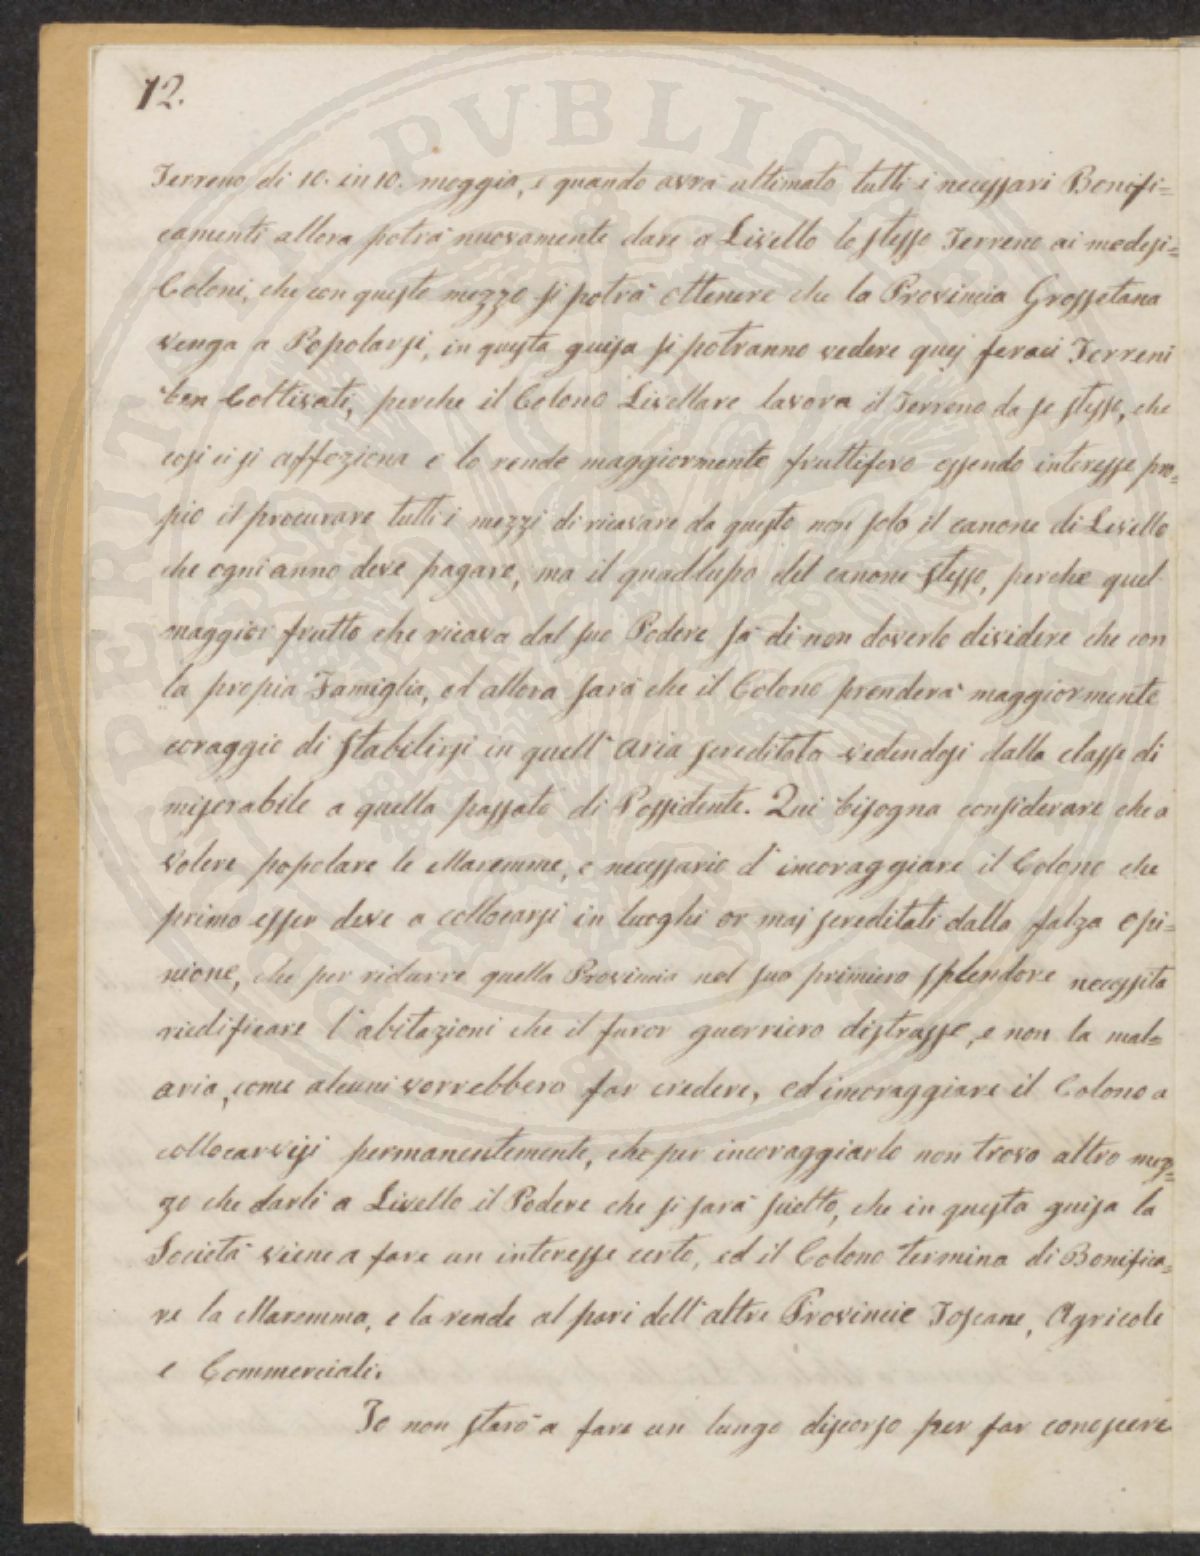 12.
Terreno di 10. in 10. moggia, e quando avrà ultimato tutti i necessari Bonifi=
camenti allora potrà nuovamente dare a Livello lo stesso Terreno ai medesi=
Coloni, che con questo mezzo si potrà ottenere che la Provincia Grossetana
venga a Popolarsi, in questa guisa si potranno vedere quej feraci Terreni
ben Coltivati, perche il Colono Livellare lavora il Terreno da se stesso, che
cosi ci si affeziona e lo rende maggiormente fruttifero essendo interesse pro=
pio il procurare tutti i mezzi di ricavare da questo non solo il canone di Livello
che ogni anno deve pagare, ma il quadlupo del canone stesso, perche quel
maggior frutto che ricava dal suo Podere sà di non doverlo dividere che con
la propia Famiglia, ed allora sarà che il Colono prenderà maggiormente
coraggio di stabilirsi in quell'aria screditata vedendosi dalla classe di
miserabile a quella passato di Possidente. Qui bisogna considerare che a
volere popolare le Maremme, e necessario d'incoraggiare il Colono che
primo esser deve a collocarsi in luoghi or maj screditati dalla falza opi=
nione, che per ridurre quella Provincia nel suo primiero splendore necessita
riedificare l'abitazioni che il furor guerriero distrusse, e non la mal=
aria, come alcuni vorrebbero far credere, ed incoraggiare il Colono a
collocarvisi permanentemente, che per incoraggiarlo non trovo altro mez=
zo che darli a Livello il Podere che si sarà scielto, che in questa guisa la
Società viene a fare un interesse certo, ed il Colono termina di Bonifica=
re la Maremma, e la rende al pari dell'altre Provincie Toscane, Agricole
e Commerciali.
Io non starò a fare un lungo discorso per far conoscere